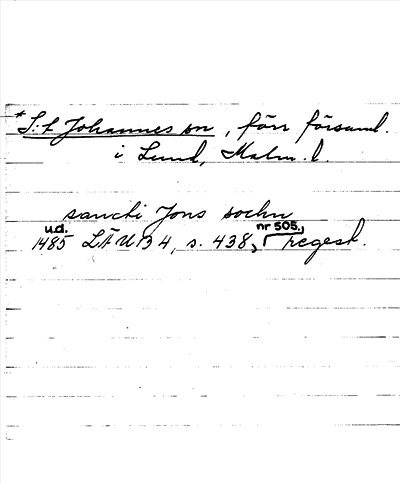 * S:t Johannes sn, förr församl.
i Lund, Malm. l.
sancti Jons sochn
u.d. nr 505,
1485 LÄUB 4, s. 438, regest.